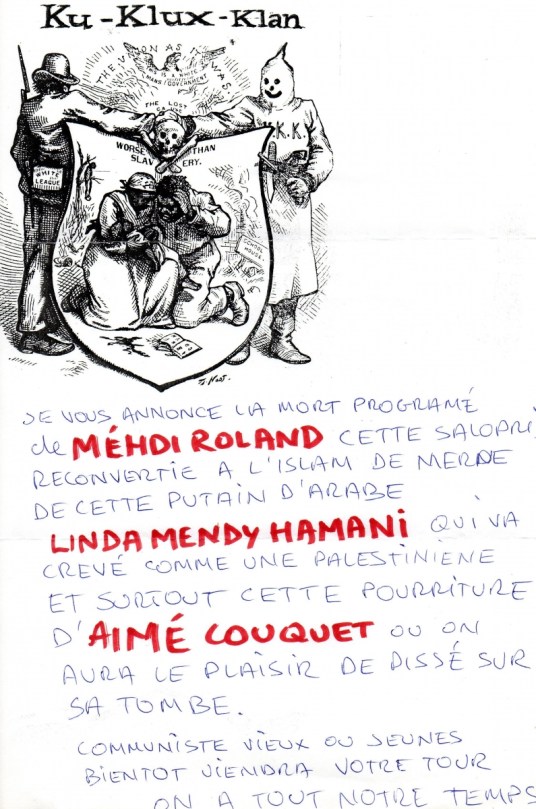 Ku-Klux-Klan
THE UNION AS IT WAS
THIS IS A WHITE
MANS GOVERNMENT
THE LOST
CAUSE
K.K.
WORSE THAN
SLAVERY.
WHITE
LEAGUE
SCHOOL
HOUSE
Th. Nast.
JE VOUS ANNONCE LA MORT PROGRAMÉ
de MÉHDI ROLAND CETTE SALOPRI
RECONVERTIE A L'ISLAM DE MERDE
DE CETTE PUTAIN D'ARABE
LINDA MENDY HAMANI QUI VA
CREVÉ COMME UNE PALESTINIENE
ET SURTOUT CETTE POURRITURE
D'AIMÉ COUQUET OU ON
AURA LE PLAISIR DE PISSÉ SUR
SA TOMBE.
COMMUNISTE VIEUX OU JEUNES
BIENTOT VIENDRA VOTRE TOUR
ON A TOUT NOTRE TEMPS